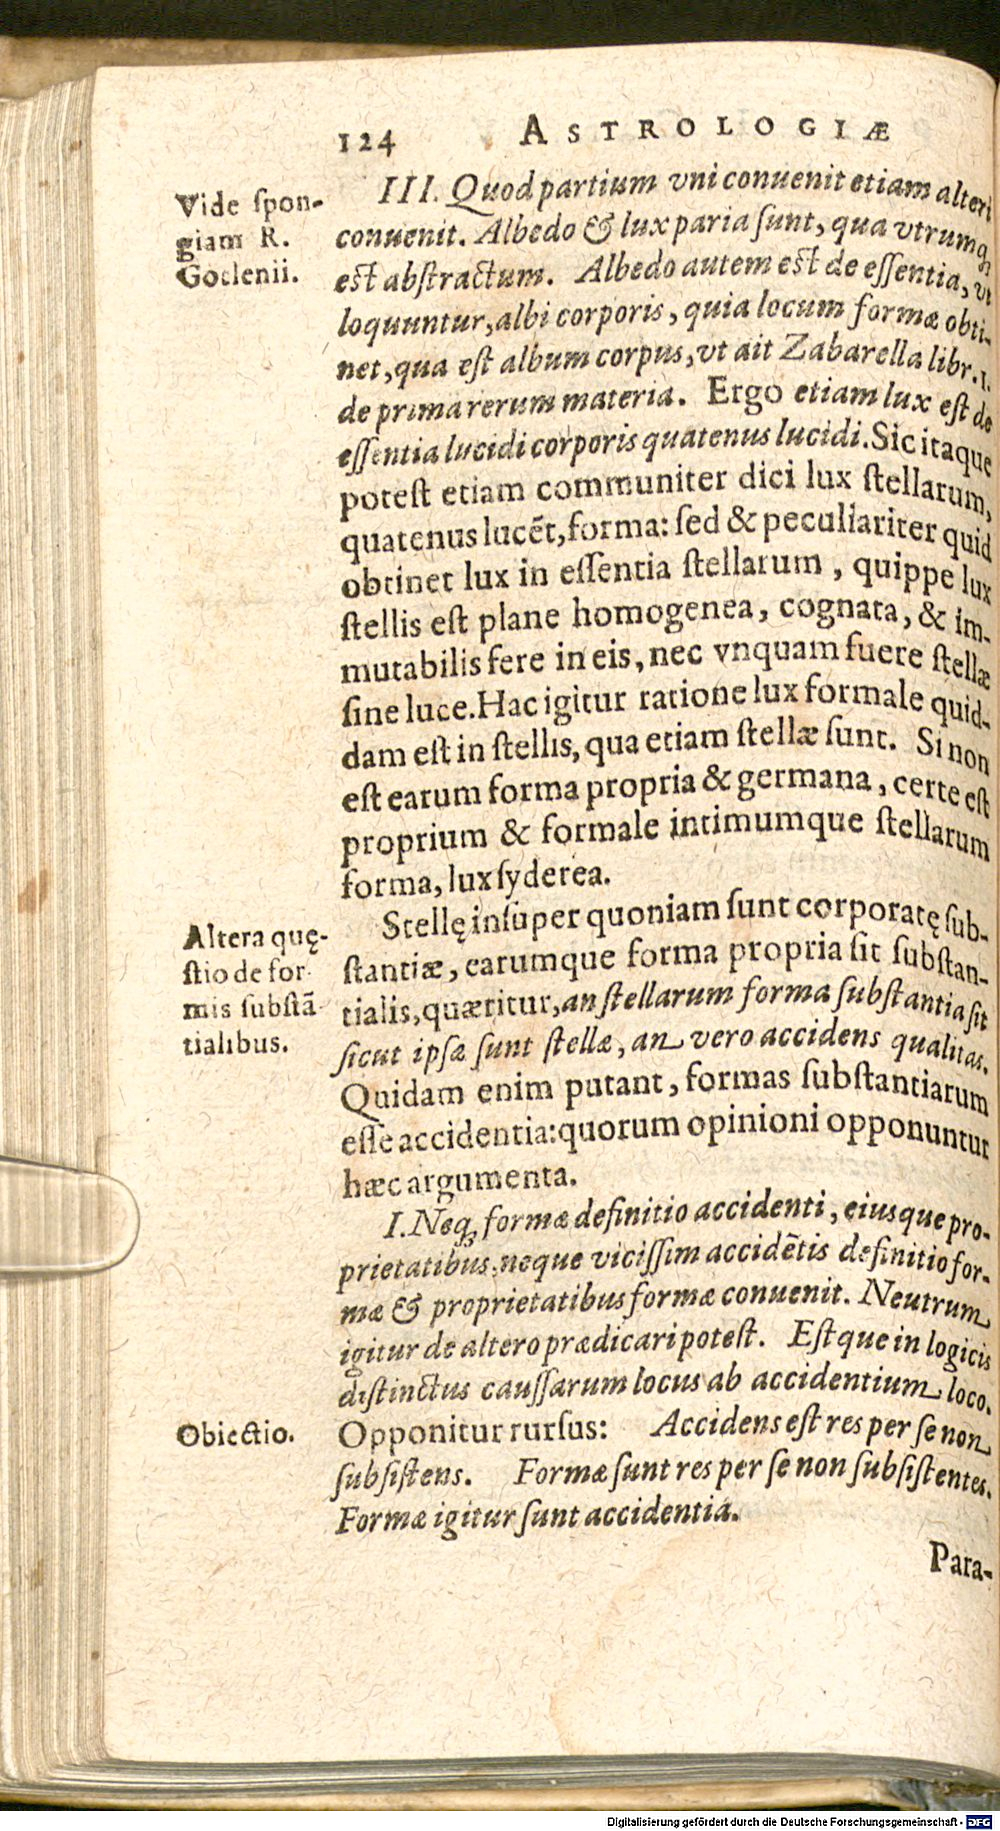 124 ASTROLOGIÆ
Vide ſpon-
giam R.
Goclenii.
III. Quod partium vni conuenit etiam alteri
conuenit. Albedo & lux paria ſunt, qua vtrumq;
eſt abſtractum. Albedo autem eſt de eſſentia, vt
loquuntur, albi corporis, quia locum formæ obti-
net, qua eſt album corpus, vt ait Zabarella libr. 1.
de prima rerum materia. Ergo etiam lux eſt de
eſſentia lucidi corporis quatenus lucidi. Sic itaque
poteſt etiam communiter dici lux ſtellarum,
quatenus lucẽt, forma: ſed & peculiariter quid
obtinet lux in eſſentia ſtellarum, quippe lux
ſtellis eſt plane homogenea, cognata, & im-
mutabilis fere in eis, nec vnquam fuere ſtellæ
ſine luce. Hac igitur ratione lux formale quid-
dam eſt in ſtellis, qua etiam ſtellæ ſunt. Si non
eſt earum forma propria & germana, certe eſt
proprium & formale intimumque ſtellarum
forma, lux ſyderea.
Altera quę-
ſtio de for
mis ſubſtã
tialibus.
Stellę inſuper quoniam ſunt corporatę ſub-
ſtantiæ, earumque forma propria ſit ſubſtan-
tialis, quæritur, an ſtellarum forma ſubſtantia ſit
ſicut ipſæ ſunt ſtellæ, an vero accidens qualitas.
Quidam enim putant, formas ſubſtantiarum
eſſe accidentia: quorum opinioni opponuntur
hæc argumenta.
I. Neq; formæ definitio accidenti, eiusque pro-
prietatibus, neque viciſſim accidẽtis definitio for-
mæ & proprietatibus formæ conuenit. Neutrum
igitur de altero prædicari poteſt. Eſtque in logicis
diſtinctus cauſſarum locus ab accidentium loco.
Obiectio.
Opponitur rurſus: Accidens eſt res per ſe non
ſubſiſtens. Formæ ſunt res per ſe non ſubſiſtentes.
Formæ igitur ſunt accidentia.
Para-
Digitalisierung gefördert durch die Deutsche Forschungsgemeinschaft - DFG